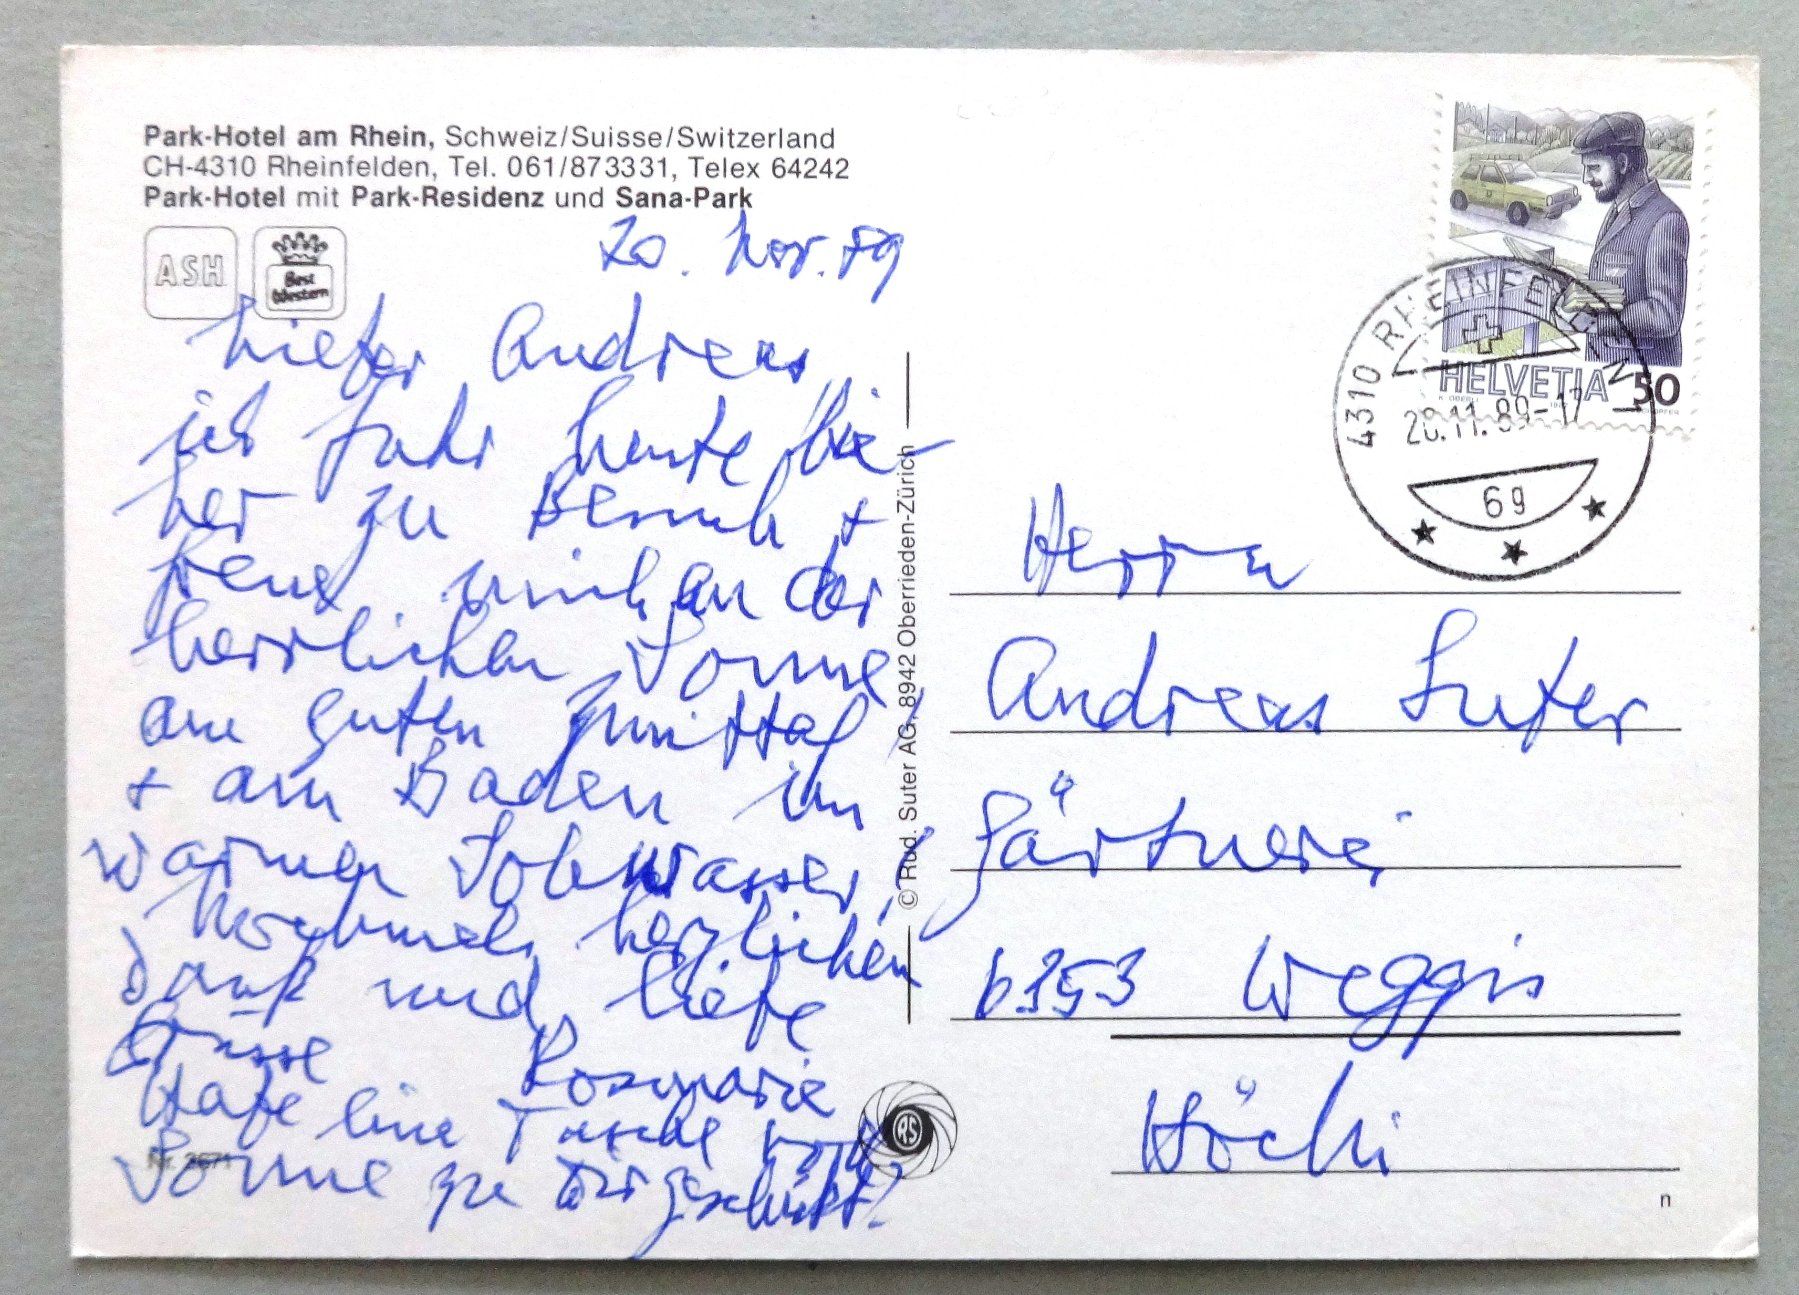 Park-Hotel am Rhein, Schweiz/Suisse/Switzerland
CH-4310 Rheinfelden, Tel. 061/873331, Telex 64242
Park-Hotel mit Park-Residenz und Sana-Park
ASH
Best
Western
20. Nov. 89
Lieber Andreas,
ich fuhr heute hie-
her zu Besuch +
freue mich an der
herrlichen Sonne
am guten Zmittag
+ am Baden im
warmen Solewasser.
Nochmals herzlichen
Dank und liebe
Grüsse Rosmarie
Habe eine Tasche voll
Sonne zu Dir geschickt!
Nr. 3671
© Rud. Suter AG, 8942 Oberrieden-Zürich
RS
HELVETIA 50
4310 RHEINFELDEN 1
20.11.89-17
6g
Herrn
Andreas Suter
Gärtnerei
6353 Weggis
Höchi
n